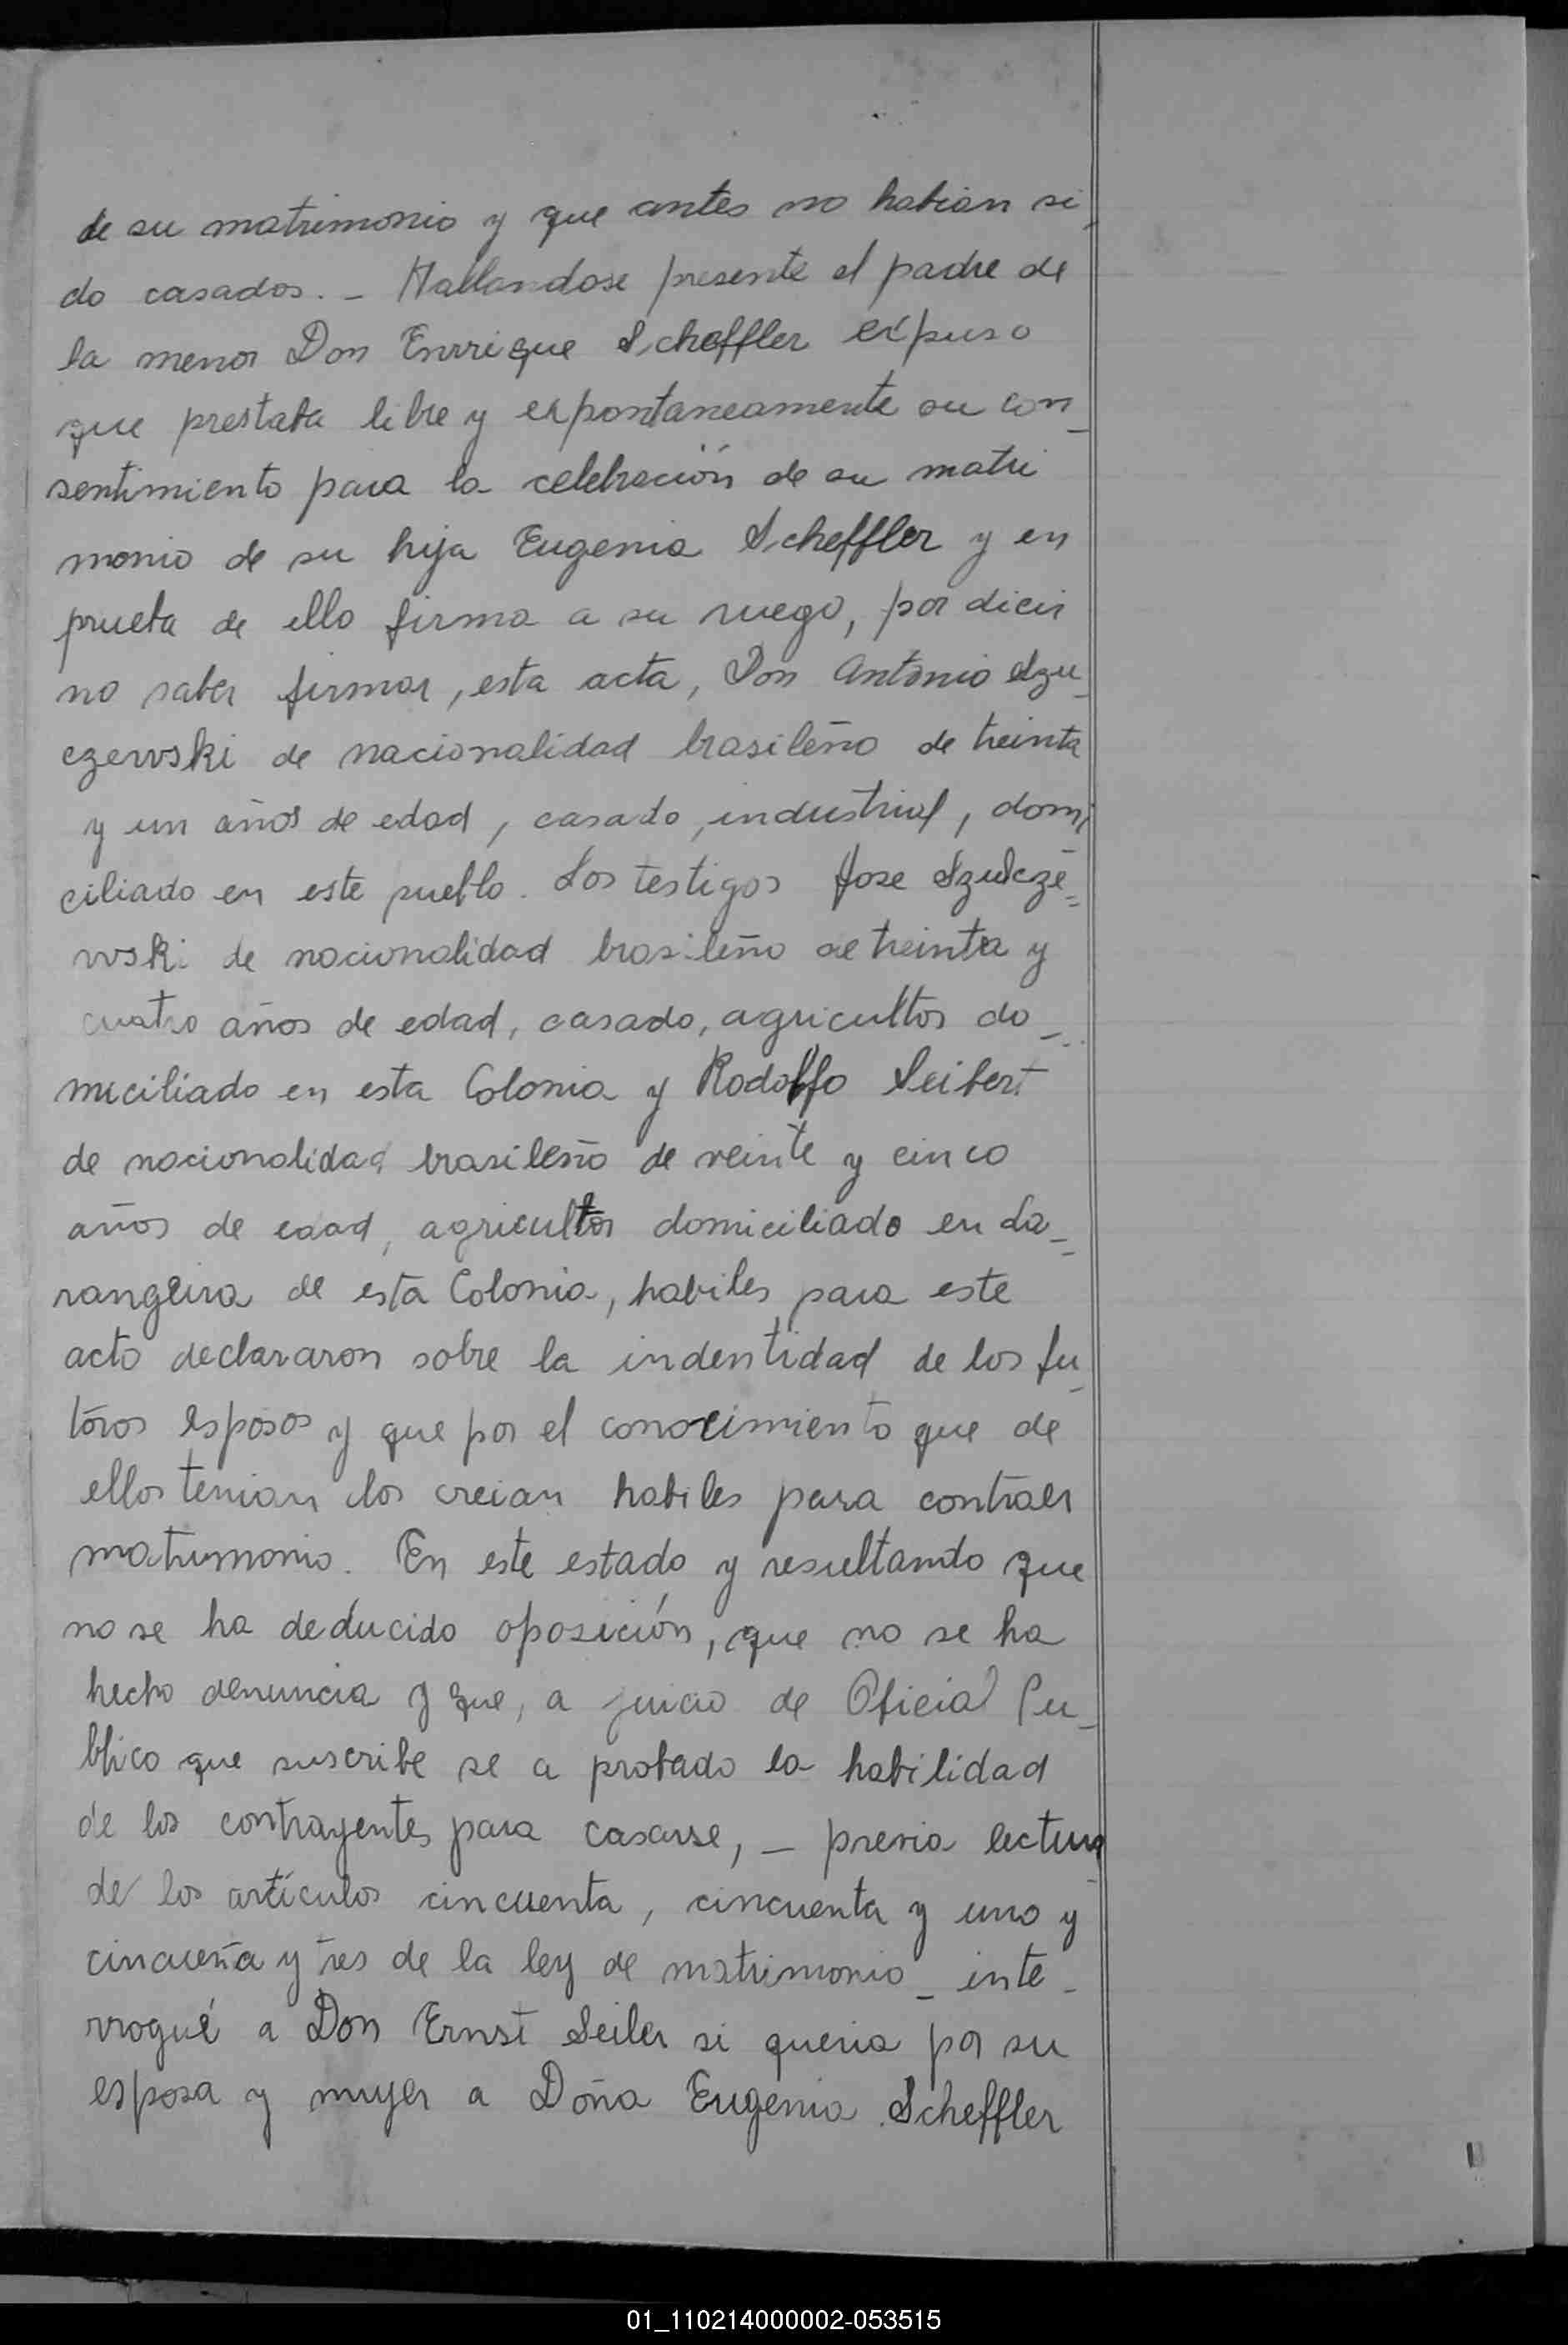 de su matrimonio y que antes no habian si_
do casados. _ Hallandose presente el padre de
la menor Don Enrrique Scheffler expuso
que prestaba libre y expontaneamente su con_
sentimiento para la celebración de su matri
monio de su hija Eugenia Scheffler y en
prueba de ello firma a su ruego, por dicir
no saber firmar, esta acta, Don Antonio Szu_
czewski de nacionalidad brasileño de treinta
y un años de edad, casado, industrial, domi
ciliado en este pueblo. Los testigos Jose Szulcze=
wski de nacionalidad brasileño de treinta y
cuatro años de edad, casado, agricultor do_
miciliado en esta Colonia y Rodolfo Seibert
de nacionalidad brasileño de veinte y cinco
años de edad, agricultor domiciliado en La=
rangeira de esta Colonia, habiles para este
acto declararon sobre la indentidad de los fu_
toros esposos y que por el conocimiento que de
ellos tenian los creian habiles para contraer
matrimonio. En este estado y resultando que
no se ha deducido oposición, que no se ha
hecho denuncia y que, a juicio de Oficial Pu_
blico que suscribe se a probado la habilidad
de los contrayentes para casarse, _ previa lectura
de los artículos cincuenta, cincuenta y uno y
cincueña y tres de la ley de matrimonio _ inte_
rrogué a Don Ernst Seiler si queria por su
esposa y mujer a Doña Eugenia Scheffler
01_110214000002-053515